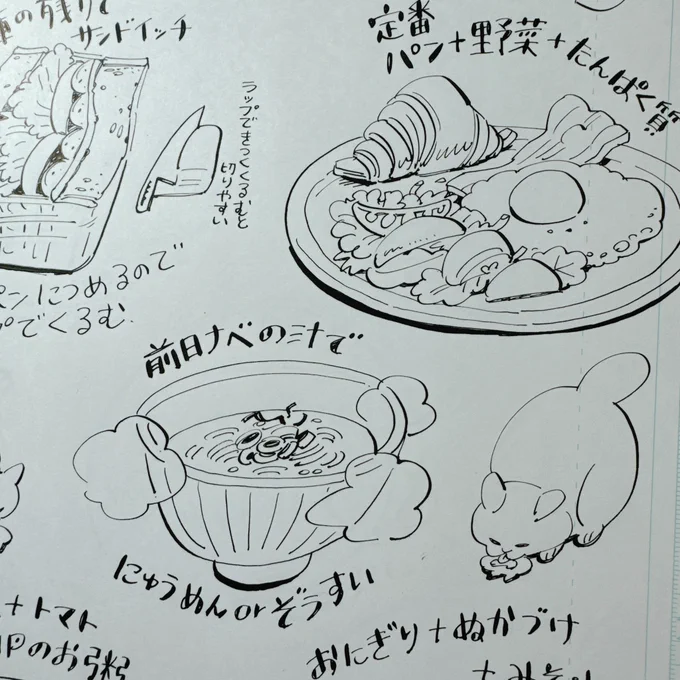 の残りで
サンドイッチ
定番
パン+野菜+たんぱく質!!
ラップできつくくるむと
切りやすい
パンにつめるので
でくるむ.
前日ナベの汁で
にゅうめんorぞうすい
+トマト
のお粥
おにぎり+ぬかづけ